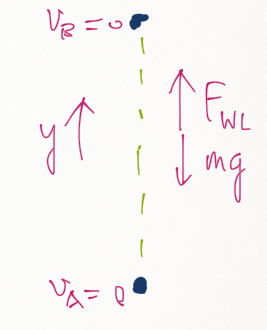 V_B = 0
F_WL
y
mg
V_A = 0